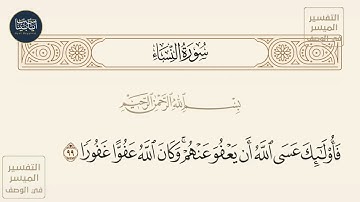 التفسير
الميسر
في الوصف
سُورَةُ النِّسَاءِ
بِسْمِ اللَّهِ الرَّحْمَٰنِ الرَّحِيمِ
فَأُوْلَٰٓئِكَ عَسَى ٱللَّهُ أَن يَعْفُوَ عَنْهُمْۚ وَكَانَ ٱللَّهُ عَفُوًّا غَفُورًا ٩٩
التفسير
الميسر
في الوصف